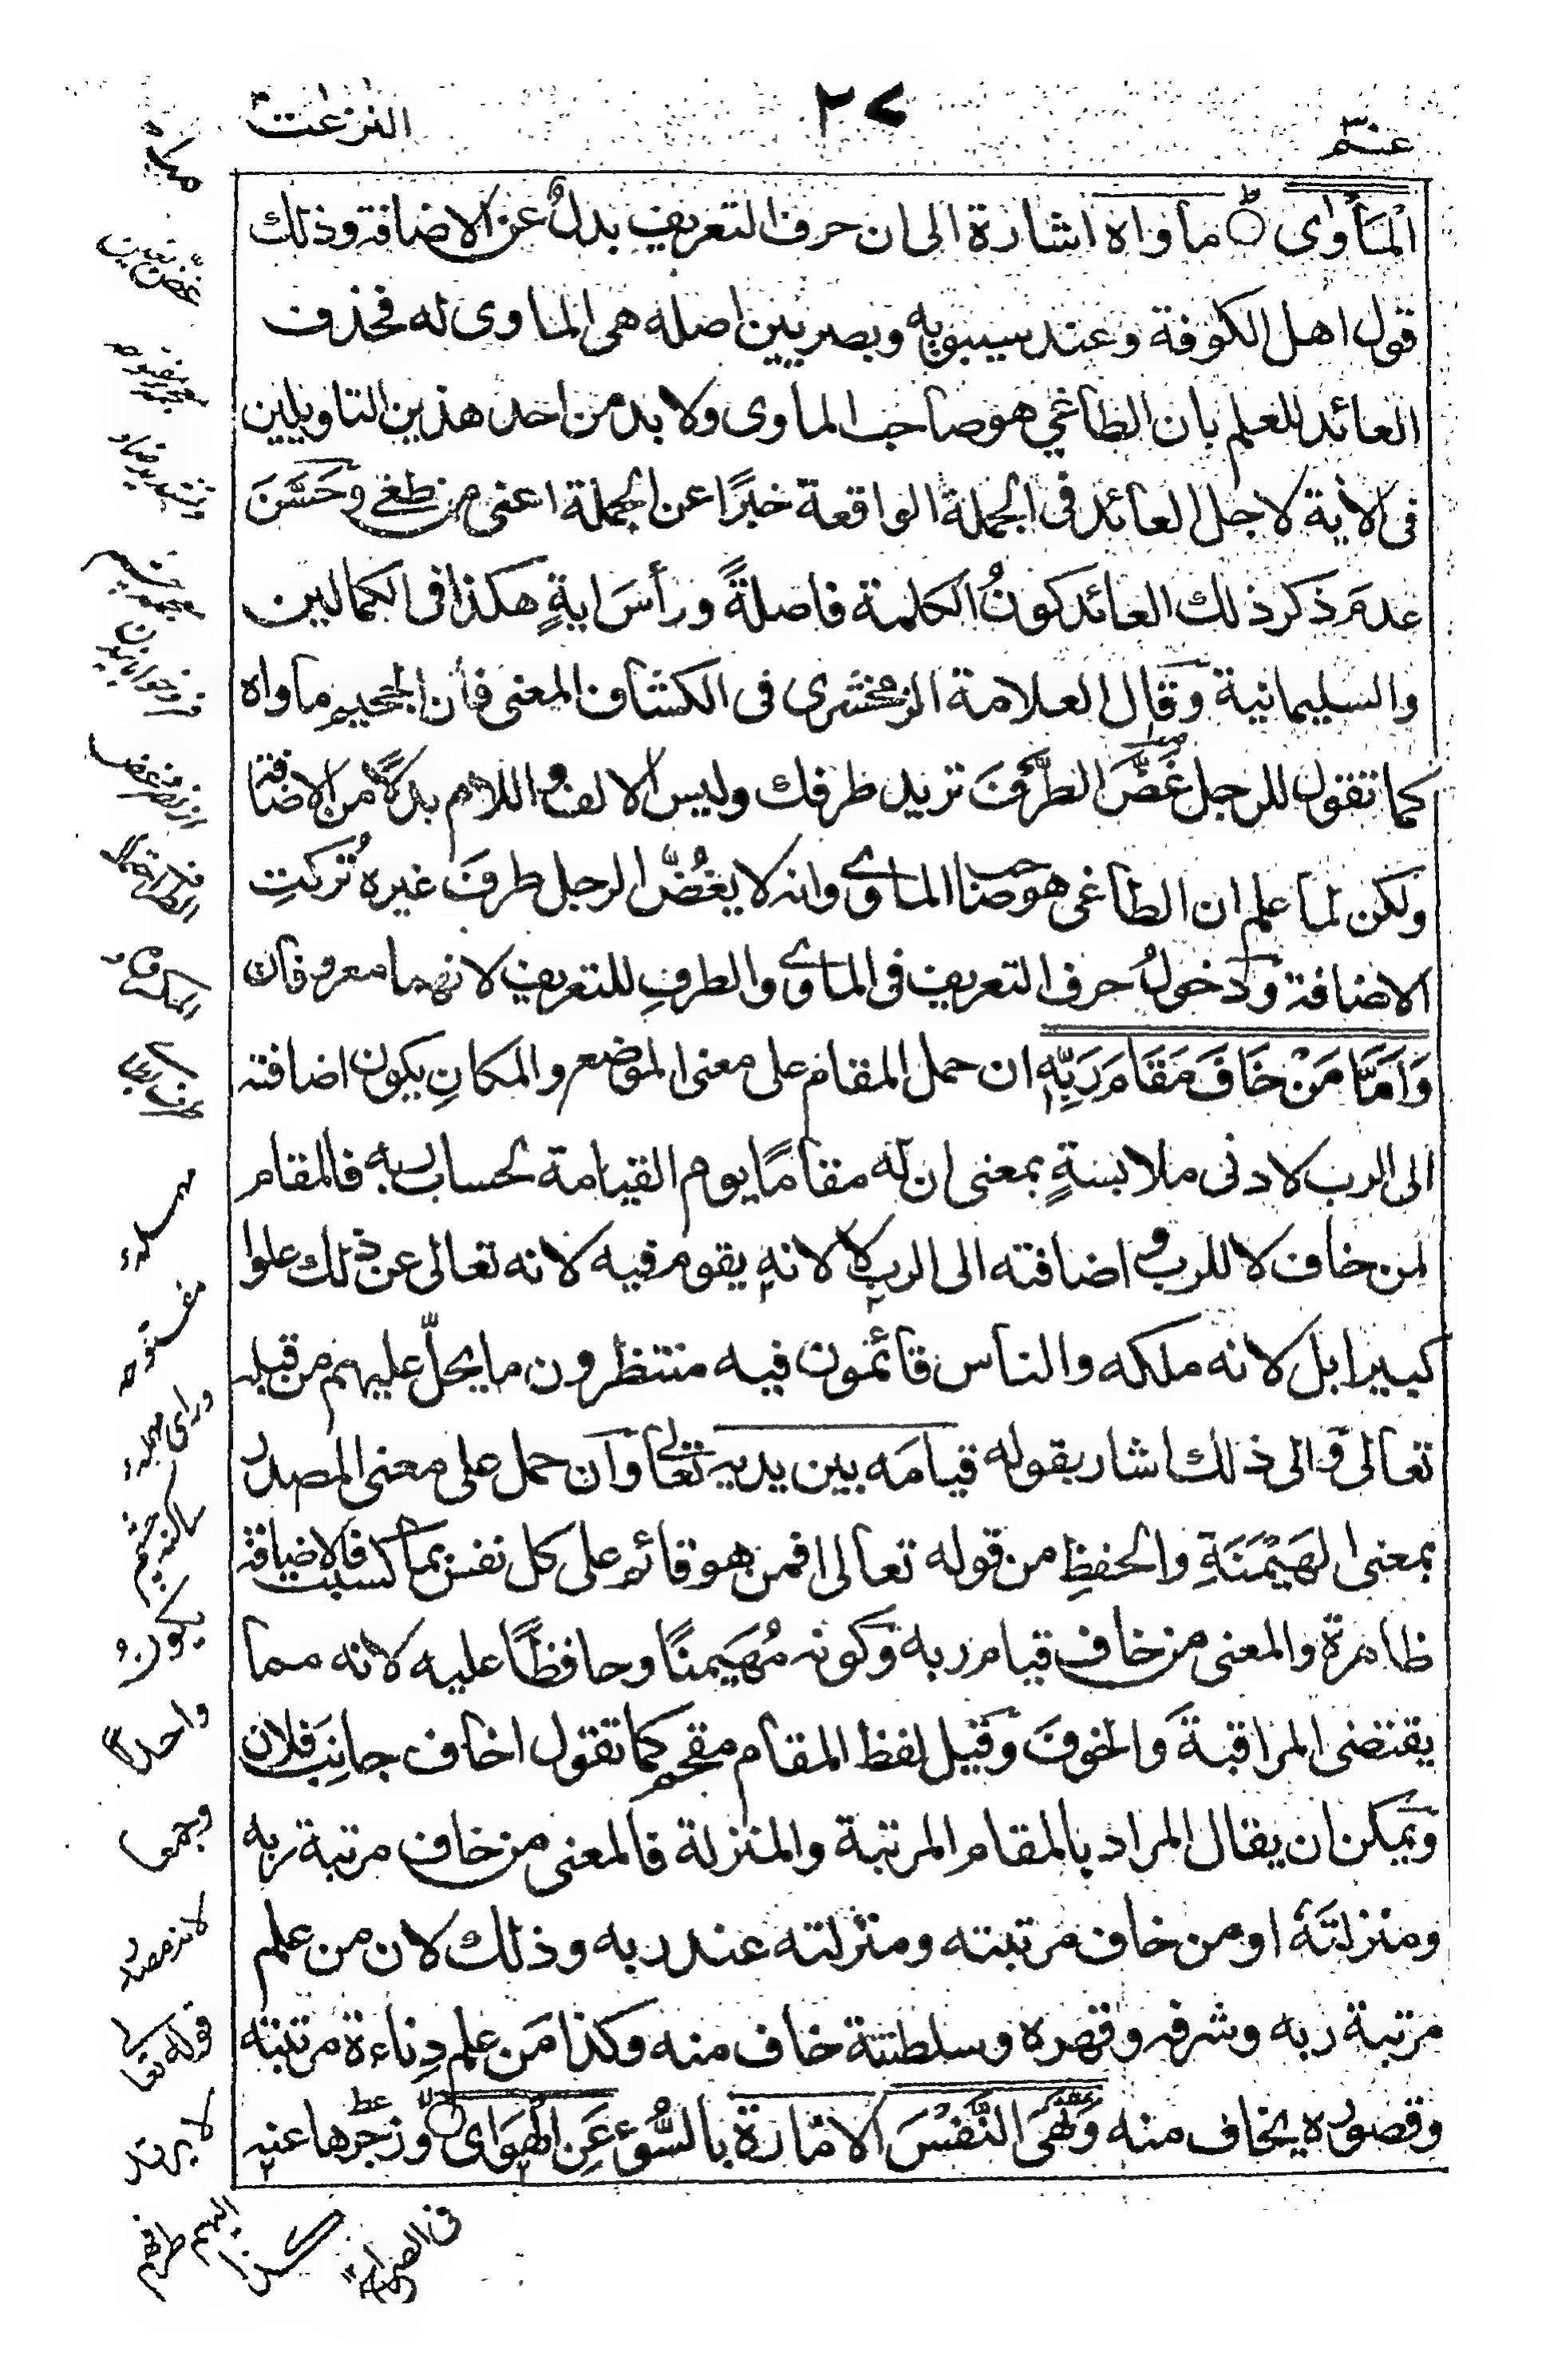 عم
٢٧
النزعت
الْمَأْوٰى ماواه اشارة الى ان حرف التعريف بدلٌ عن الاضافة وذلك
قول اهل الكوفة وعند سيبويه وبصريين اصله هى الماوى له فحذف
العائد للعلم بان الطاغي هو صاحب الماوى ولا بد من احد هذين التاويلين
فى الآية لاجل العائد فى الجملة الواقعة خبرًا عن الجملة اعنى من طغى وحَسَّنَ
عدمَ ذكر ذلك العائد كونُ الكلمة فاصلةً ورأسَ ايةٍ هكذا فى الكمالين
والسليمانية وقال العلامة الزمخشرى فى الكشاف المعنى فان الجحيم ماواه
كما تقول للرجل غُضَّ الطرْفَ تريد طرفك وليس الالف واللام بدلًا من الاضافة
ولكن لما علم ان الطاغى هو صاحب الماوى وانه لا يغُضُّ الرجل طرفَ غيره تُركتِ
الاضافة ودخولُ حرف التعريف فى الماوى والطرفِ للتعريف لانهما معروفان
وَاَمَّا مَنْ خَافَ مَقَامَ رَبِّهٖ ان حمل المقام على معنى الموضع والمكانِ يكون اضافته
الى الرب لادنى ملابسةٍ بمعنى ان له مقامًا يوم القيامة لحساب ربه فالمقام
لمن خاف لا للرب و اضافته الى الرب لا لانه يقوم فيه لانه تعالى عن ذلك علوا
كبيرا بل لانه ملكه والناس قائمون فيه منتظرون ما يحلّ عليهم من قبله
تعالى والى ذلك اشار بقوله قيامَه بين يديه تعالى وان حمل على معنى المصدر
بمعنى الهَيْمَنَةِ والحفظِ من قوله تعالى افمن هو قائم على كل نفس بما كسبت فالاضافة
ظاهرة والمعنى من خاف قيام ربه وكونه مُهَيمنًا وحافظًا عليه لانه مما
يقتضى المراقبةَ والخوفَ وقيل لفظ المقام مقحم كما تقول اخاف جانِبَ فلان
ويمكن ان يقال المراد بالمقام المرتبة والمنزلة فالمعنى من خاف مرتبة ربه
ومنزلتَهٗ او من خاف مرتبته ومنزلته عند ربه وذلك لان من علم
مرتبة ربه وشرفه وقهره وسلطنته خاف منه وكذا مَن علم دِناءة مرتبته
وقصوره يخاف منه وَنَهَى النَّفْسَ الامّارة بالسُّوءِ عَنِ الْهَوٰى وزجرها عنه
مفتوحه
يكون
واحدا
وجمعا
لانه مصدر
قوله تعالى
لا يرتد
اليهم طرفهم
كذا
فى الصراح